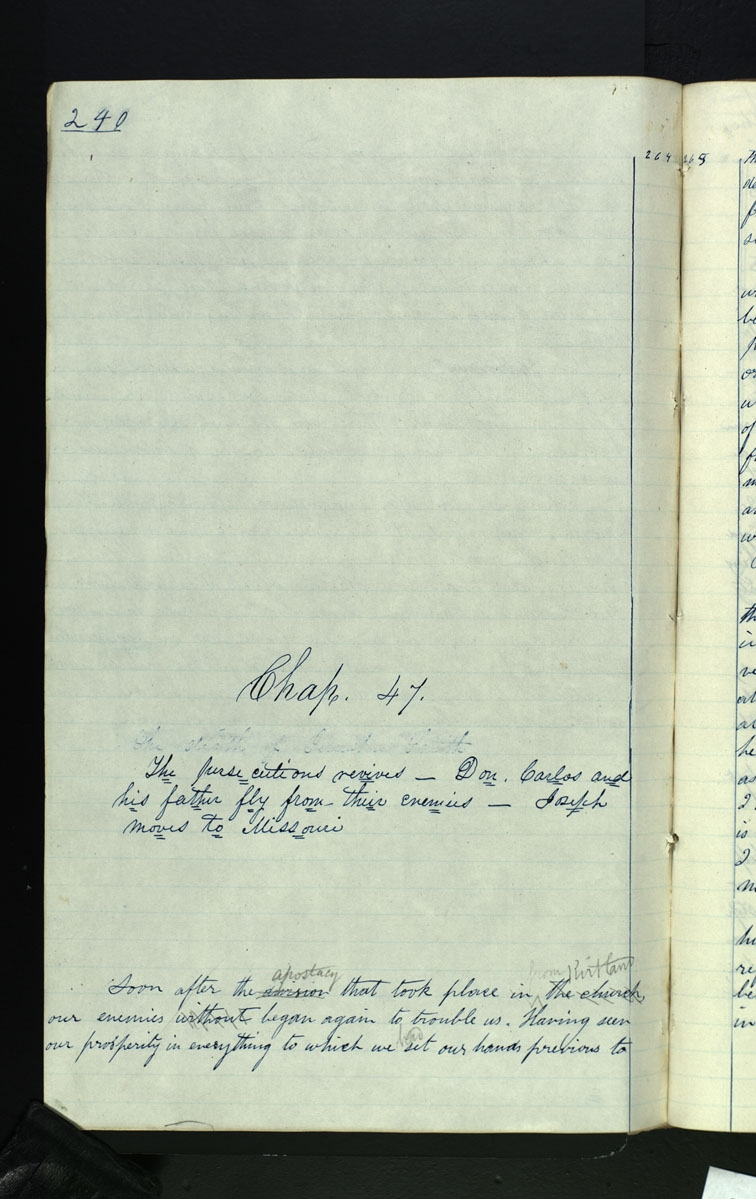 240
264 265
Chap. 47.
The death of
The persecutions revives — Don. Carlos and
his father fly from their enemies — Joseph
moves to Missouri
apostacy from Kirtland
Soon after the division that took place in the church
our enemies without began again to trouble us. Having seen
had
our prosperity in everything to which we set our hands previous to